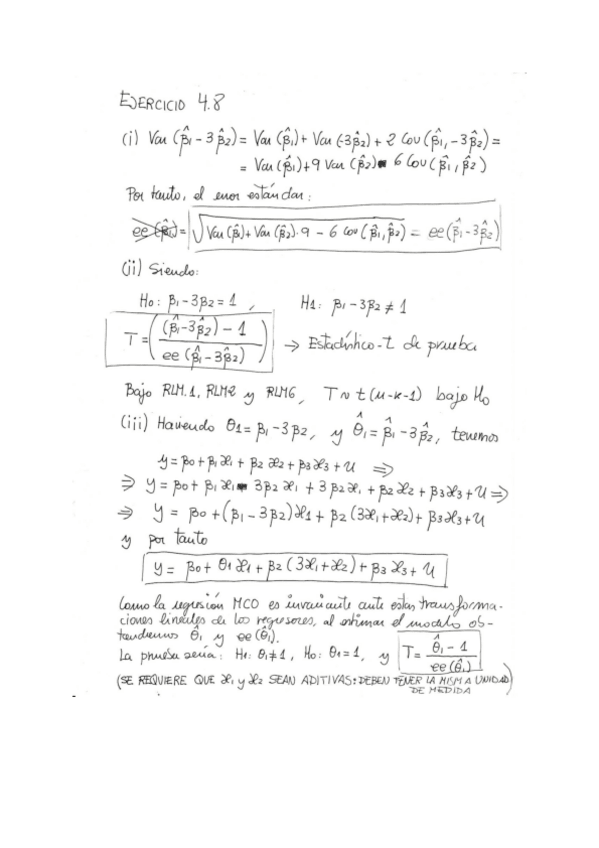 EJERCICIO 4.8
(i) Var (β̂1 - 3β̂2) = Var (β̂1) + Var (-3β̂2) + 2 Cov (β̂1, -3β̂2) =
= Var (β̂1) + 9 Var (β̂2) - 6 Cov (β̂1, β̂2)
Por tanto, el error estándar:
ee (β̂1) = √Var (β̂1) + Var (β̂2)·9 - 6 Cov (β̂1, β̂2) = ee (β̂1 - 3β̂2)
(ii) Siendo:
H0: β1 - 3β2 = 1, H1: β1 - 3β2 ≠ 1
T = ( (β̂1 - 3β̂2) - 1 / ee (β̂1 - 3β̂2) ) → Estadístico-t de prueba
Bajo RLM.1, RLM2 y RLM6, T ~ t (n-k-1) bajo H0
(iii) Haciendo θ1 = β1 - 3β2, y θ̂1 = β̂1 - 3β̂2, tenemos
y = β0 + β1x1 + β2x2 + β3x3 + u ⇒
⇒ y = β0 + β1x1 - 3β2x1 + 3β2x1 + β2x2 + β3x3 + u ⇒
⇒ y = β0 + (β1 - 3β2)x1 + β2(3x1 + x2) + β3x3 + u
y por tanto
y = β0 + θ1x1 + β2(3x1 + x2) + β3x3 + u
Como la regresión MCO es invariante ante estas transforma-
ciones lineales de los regresores, al estimar el modelo ob-
tendremos θ̂1 y ee(θ̂1).
La prueba sería: H1: θ1≠1, H0: θ1=1, y T = θ̂1 - 1 / ee(θ̂1)
(SE REQUIERE QUE x1 y x2 SEAN ADITIVAS: DEBEN TENER LA MISMA UNIDAD)
DE MEDIDA